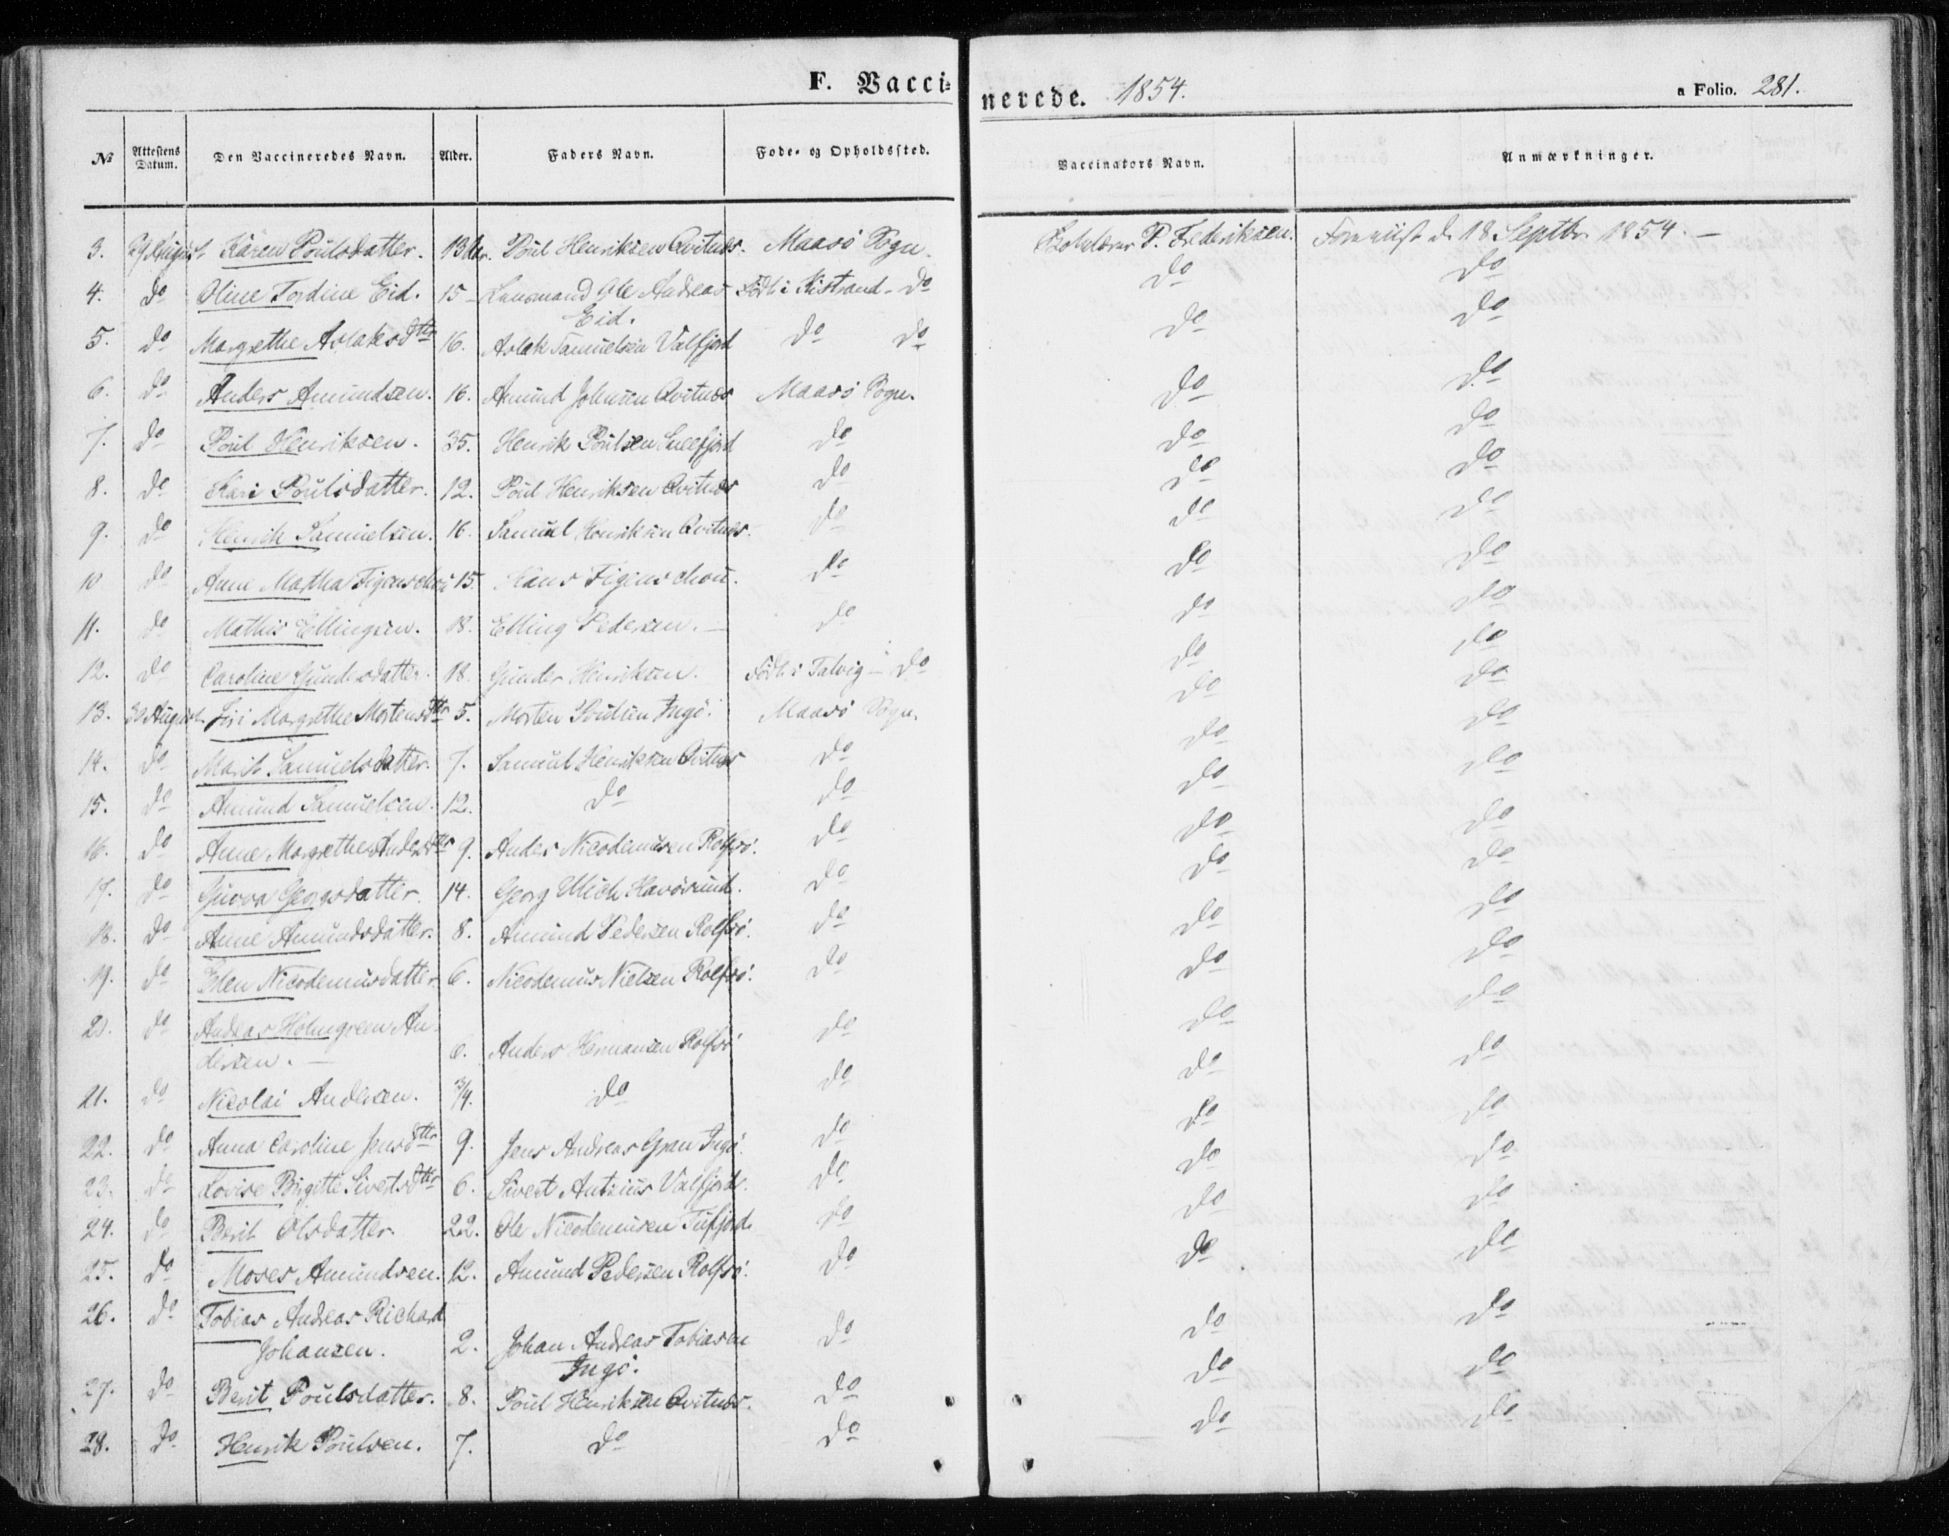 F. Vaccinerede. 1854. a Folio. 281.
№ Attestens Datum. Den Vaccineredes Navn. Alder. Faders Navn. Føde- og Opholdssted. Vaccinators Navn. Anmærkninger.
3. August Karen Poulsdatter. 13 Poul Henriksen Qvitnæs. Maasö Sogn. P. Frederiksen. d. 18 Septbr. 1854. —
4. do Oline Tordine Eid. 15 - Lensmand Ole Andreas Eid. Födt i Kistrand - do do do
5. do Margrethe Aslaksdttr 16. Aslak Samuelsen Valfjord do do do do
6. do Anders Amundsen. 16. Amund Johnsen Qvitnæs Maasö Sogn. do do
7. do Poul Henriksen. 35. Henrik Poulsen Sneefjord do do do
8. do Kari Poulsdatter. 12. Poul Henriksen Qvitnæs do do do
9. do Henrik Samuelsen. 16. Samuel Henriksen Qvitnæs. do do do
10 do Anne Martha Figenschou 15. Hans Figenschou. do do do
11. do Mathis Ellingsen. 18. Elling Pedersen. — do do do
12. do Caroline Gundersdatter. 18. Gunder Henriksen. Födt i Talvig — do do do
13. 30 August. Margrethe Mortensdttr 5. Morten Poulsen Ingö. Maasö Sogn. do do
14. do Marit Samuelsdatter. 7. Samuel Henriksen Qvitnæs do do do
15. do Amund Samuelsen. 12. do do do do
16. do Anne Margrethe Andersdttr 9. Anders Nicodemusen Rolfsö. do do do
17. do Georgsdatter. 14. Georg Ulich Havösund. do do do
18. do Anne Amundsdatter. 8. Amund Pedersen Rolfsö. do do do
19. do Elen Nicodemusdatter 6. Nicodemus Nielsen Rolfsö. do do do
20. do Andreas Holmgreen Andersen. — 6. Anders Hermansen Rolfsö do do do
21. do Nicolai Andersen. 3/4. do do do do
22. do Anna Caroline Jensdttr 9. Jens Andreas Gran Ingö. do do do
23. do Lovise Birgitte Sivertsdttr 6. Sivert Valfjord. do do do
24. do Berit Olsdatter. 22. Ole Nicodemusen Tufjord do do do
25. do Moses Amundsen. 12. Amund Pedersen Rolfsö. do do do
26. do Tobias Andreas Richard Johansen. 2. Johan Andreas Tobiasen Ingö. do do do
27. do Berit Poulsdatter. 8. Poul Henriksen Qvitnæs. do do do
28. do Henrik Poulsen. 7. do do do do